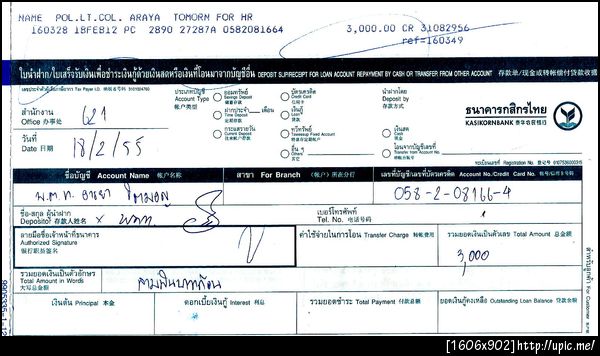 NAME POL.LT.COL. ARAYA TOMORN FOR HR
3,000.00 CR 31082956
160328 18FEB12 PC 2890 27287A 0582081664
ref=160349
ใบนำฝาก/ใบเสร็จรับเงินเพื่อชำระเงินกู้ด้วยเงินสดหรือเงินที่โอนมาจากบัญชีอื่น DEPOSIT SLIP/RECEIPT FOR LOAN ACCOUNT REPAYMENT BY CASH OR TRANSFER FROM OTHER ACCOUNT 存款单/现金或转帐偿付贷款收据
สำนักงาน 621
Office 办事处
วันที่ 18/2/55
Date 日期
ประเภทบัญชี
Account Type
帐户类型
ออมทรัพย์
Savings Deposit
储蓄存款
ฝากประจำ เดือน
Time Deposit
定期存款
กระแสรายวัน
Current Deposit
บัตรเครดิต
Credit Card
信用卡
เงินกู้
Loan
贷款
ทวีทรัพย์
Taweesup Fixed Account
อื่น ๆ
Others
其它
นำฝากโดย
Deposit by
存款方式
เงินสด
Cash
现金
โอนจากบัญชีเลขที่
Transfer from Account No.
ธนาคารกสิกรไทย
KASIKORNBANK 泰华农民银行
ทะเบียนเลขที่ Registration No. 登记号 0107536000315
ชื่อบัญชี Account Name 帐户名称
สาขา For Branch (帐户)所在分行
เลขที่บัญชี/เลขที่บัตรเครดิต Account No./ Credit Card No.
พ.ต.ท. อารยา โตมอญ
058-2-08166-4
ชื่อ-สกุล ผู้นำฝาก
Depositor 存款人姓名
เบอร์โทรศัพท์
Tel. No. 电话号码
ลายมือชื่อเจ้าหน้าที่ธนาคาร
Authorized Signature
银行职员签名
ค่าใช้จ่ายในการโอน Transfer Charge 转帐费用
รวมยอดเงินเป็นตัวเลข Total Amount 总金额
3,000
รวมยอดเงินเป็นตัวอักษร
Total Amount in Words
大写总金额
สามพันบาทถ้วน
เงินต้น Principal 本金
ดอกเบี้ยเงินกู้ Interest 利息
รวมยอดชำระ Total Payment 付款总额
ยอดเงินกู้คงเหลือ Outstanding Loan Balance 贷款余额
[1606x902]http://upic.me/